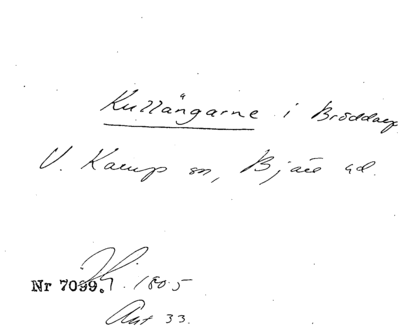 Kullängarne i Bröddarp
V. Karup sn, Bjäre hd.
Nr 7099. 1805
Akt 33.